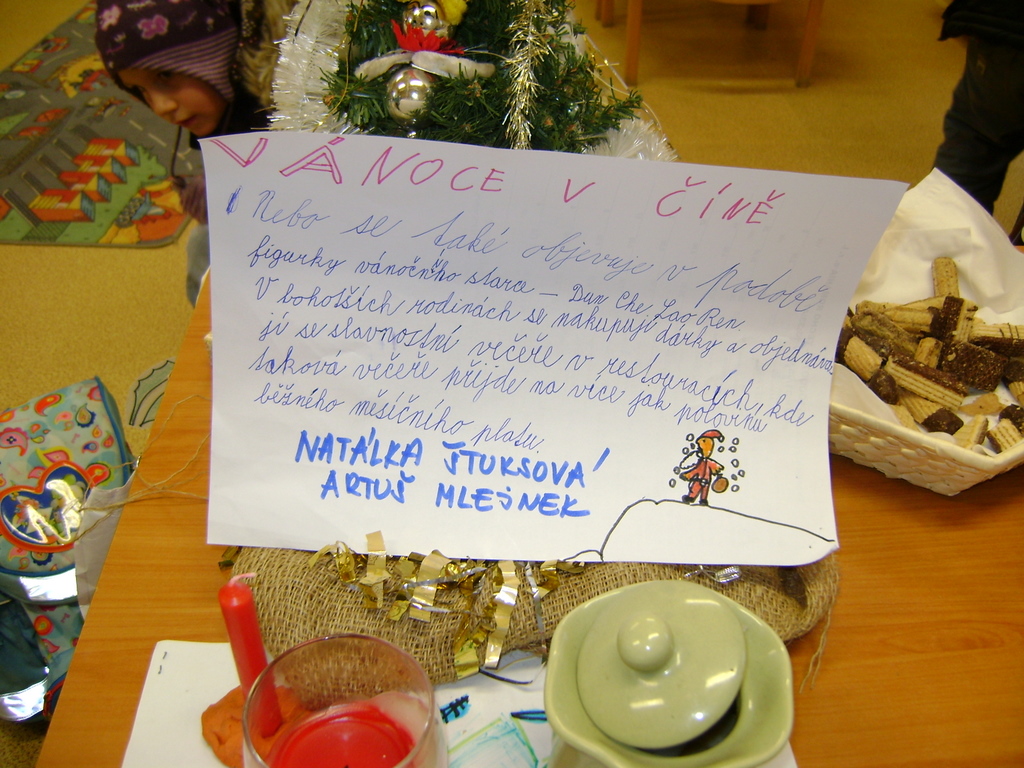 VÁNOCE V ČÍNĚ
Nebo se také objevuje v podobě
figurky vánočního starce – Dun Che Lao Ren.
V bohatších rodinách se nakupují dárky a objednáva
jí se slavnostní večeře v restauracích, kde
taková večeře přijde na více jak polovinu
běžného měsíčního platu.
NATÁLKA ŠTUKSOVÁ
ARTUŠ MLEJNEK